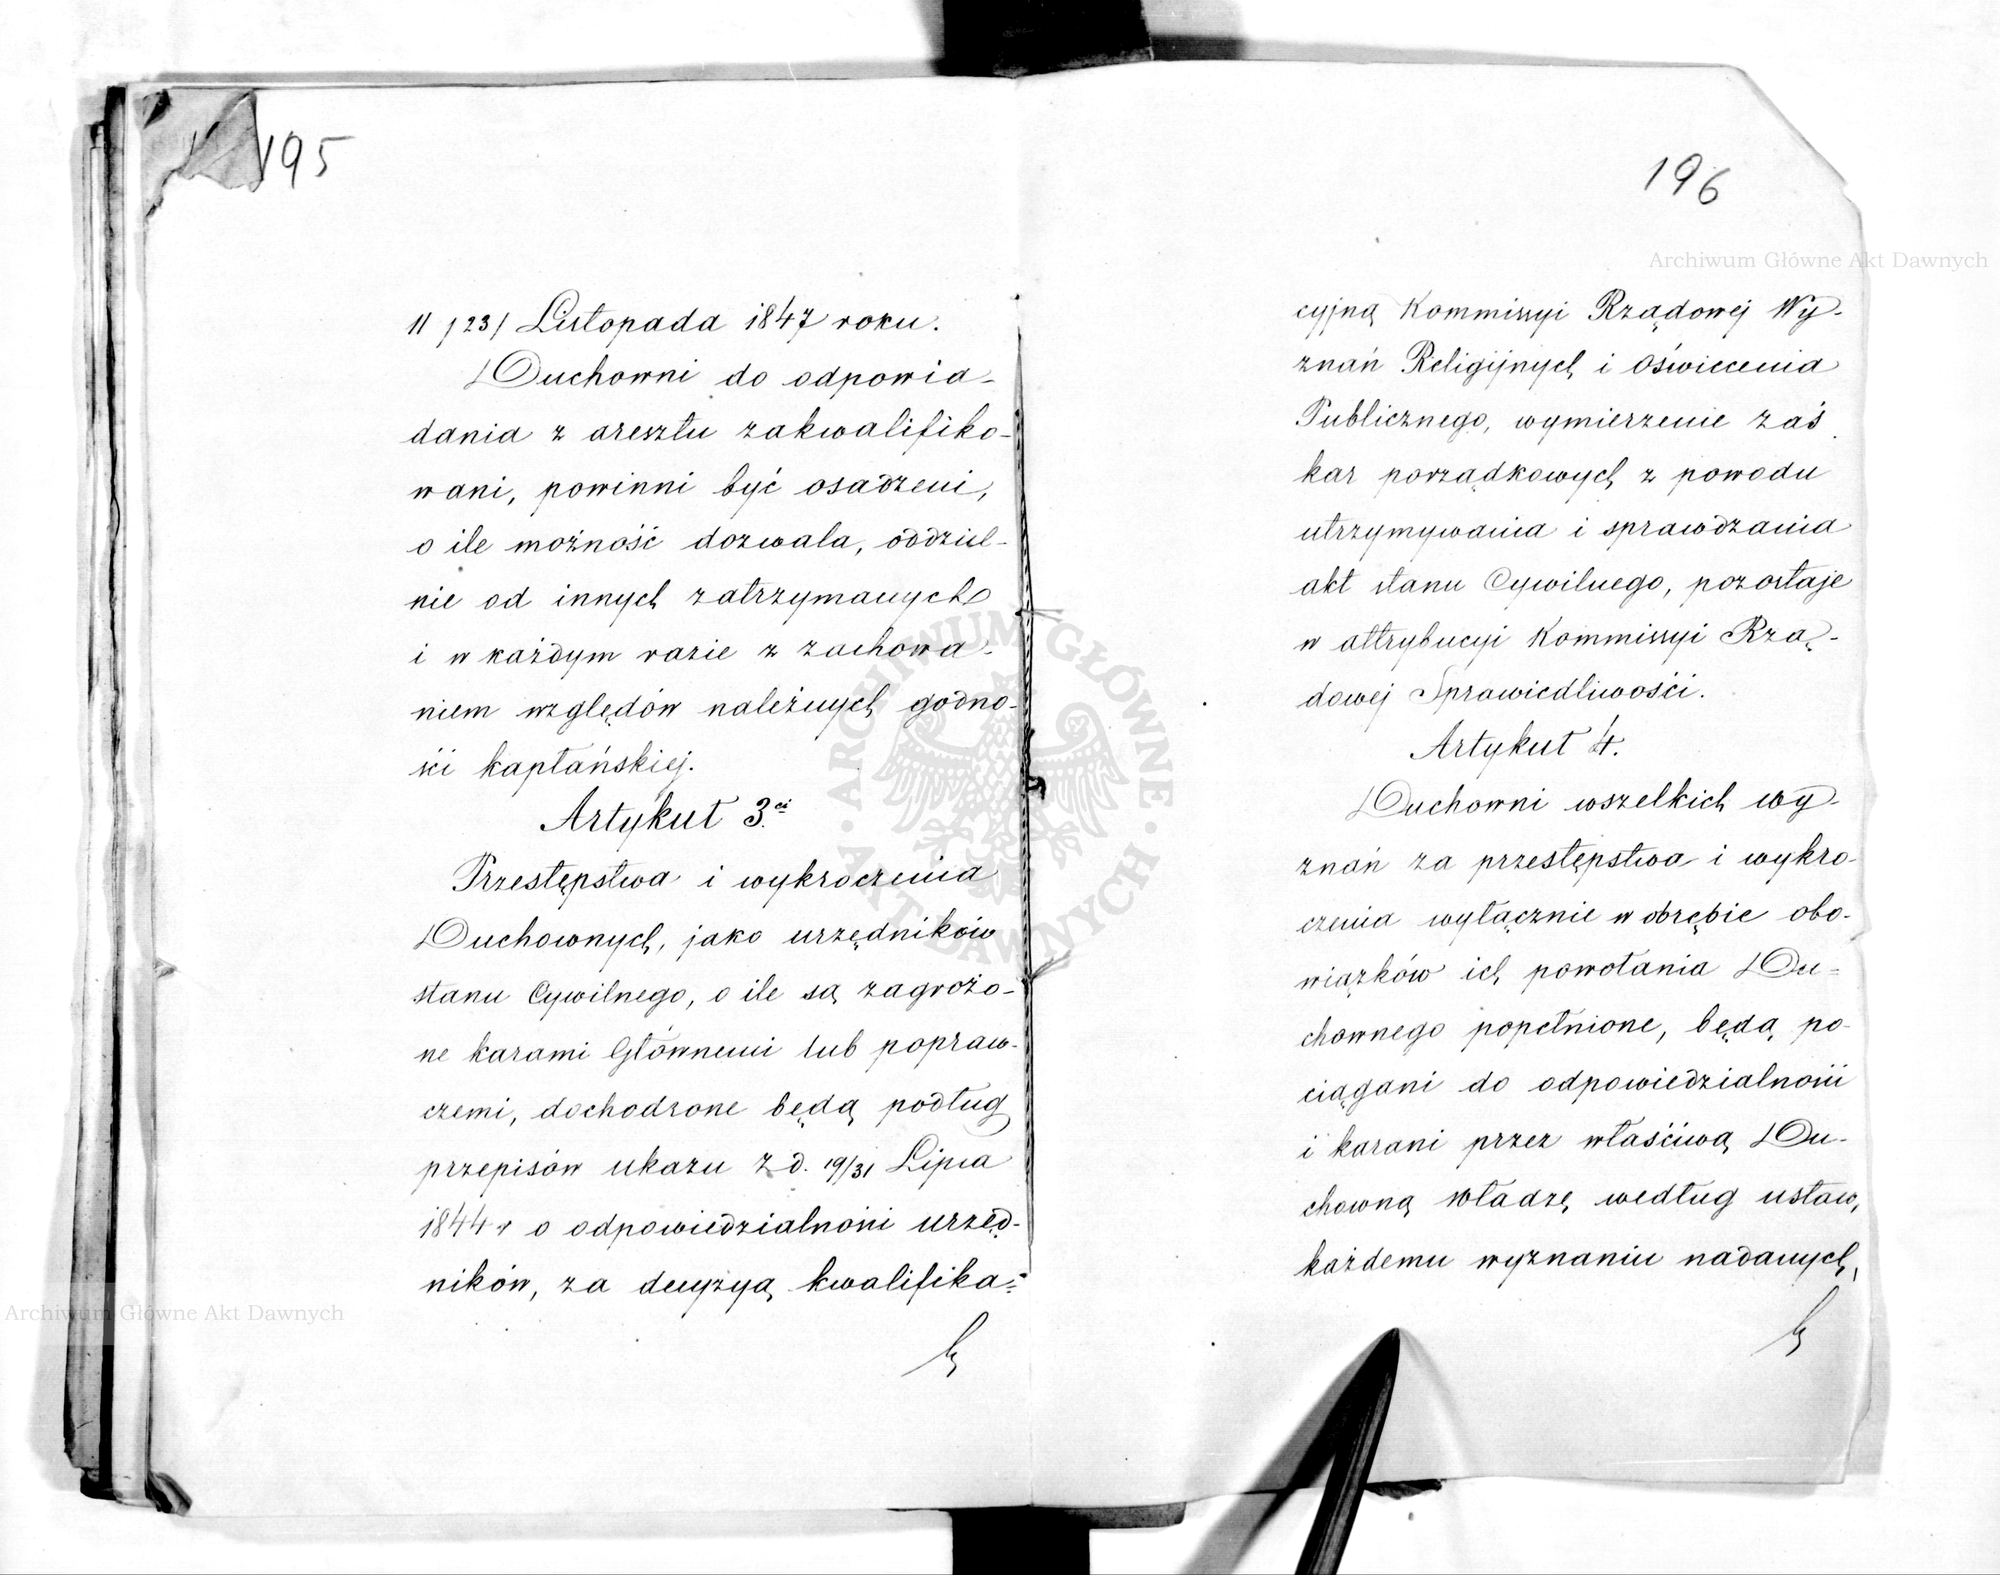 195
11 /23/ Listopada 1847 roku.
Duchowni do odpowia-
dania z aresztu zakwalifiko-
wani, powinni być osadzeni,
o ile możność dozwala, oddziel-
nie od innych zatrzymanych
i w każdym razie z zachowa-
niem względów należnych godno-
ści kapłańskiej.
Artykuł 3.ci
Przestępstwa i wykroczenia
Duchownych, jako urzędników
stanu Cywilnego, o ile są zagrożo-
ne karami Głównemi lub popraw-
czemi, dochodzone będą podług
przepisów ukazu z d. 19/31 Lipca
1844 r o odpowiedzialności urzęd-
ników, za decyzyą kwalifika=
196
cyjną Kommissyi Rządowej Wy-
znań Religijnych i Oświecenia
Publicznego, wymierzenie zaś
kar porządkowych z powodu
utrzymywania i sprawdzania
akt stanu Cywilnego, pozostaje
w attrybucyi Kommissyi Rzą-
dowej Sprawiedliwości.
Artykuł 4.
Duchowni wszelkich wy-
znań za przestępstwa i wykro-
czenia wyłącznie w obrębie obo-
wiązków ich powołania Du=
chownego popełnione, będą po-
ciągani do odpowiedzialności
i karani przez właściwą Du-
chowną władzę według ustaw,
każdemu wyznaniu nadanych,
Archiwum Główne Akt Dawnych
Archiwum Główne Akt Dawnych
ARCHIWUM GŁÓWNE · AKT DAWNYCH ·